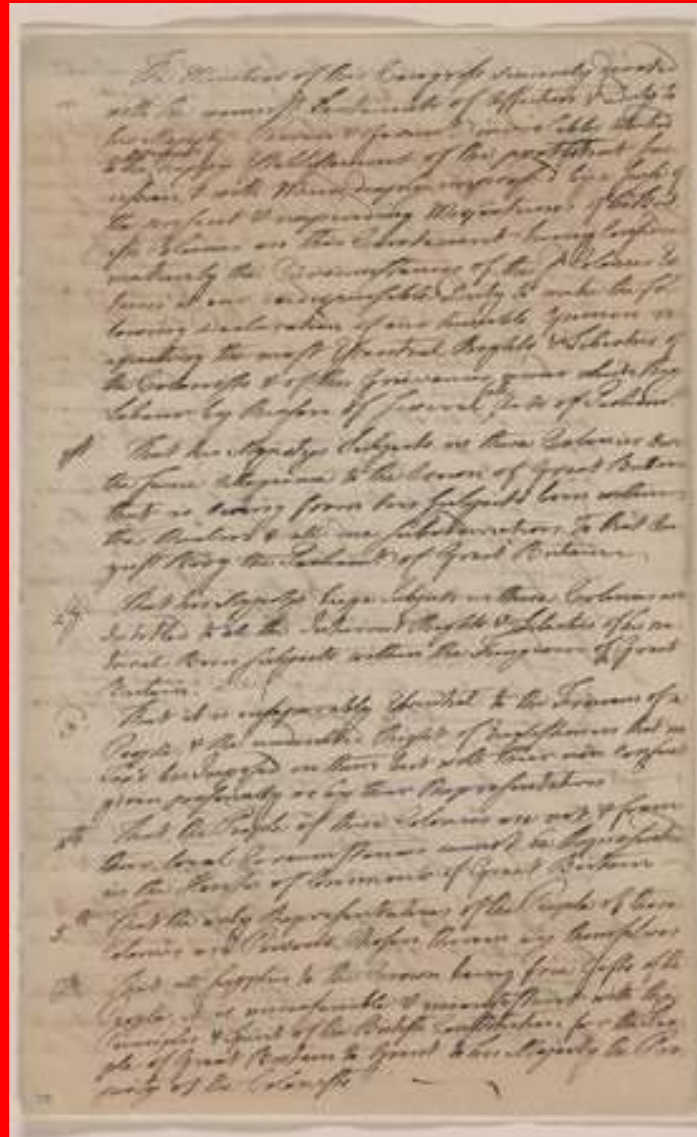 The Members of this Congress sincerely devoted
with the warmest Sentiments of Affection & Duty to
his Majestys Person & Government inviolably attached
to the happy Establishment of the protestant Suc
cession & with Minds deeply impressed by a Sense of
the present & impending Misfortunes of the Brit
ish Colonies on this Continent having considered
maturely the Circumstances of these Colonies Es
teem it our indispensible Duty to make the fol
lowing declaration of our humble Opinion re
specting the most Essential Rights & Liberties of
the Colonists & of the Grievances under which they
Labour by Reason of Several late Acts of Parliamt.
That his Majestys Subjects in these Colonies owe
the same Allegiance to the Crown of Great Britain
that is owing from his Subjects born within
the Realm & all due Subordination to that au
gust Body the Parliamt of Great Britain
2dly That his Majestys Liege Subjects in these Colonies are
Entitled to all the Inherent Rights & Liberties of his na
tural Born Subjects within the Kingdom of Great
Britain.
That it is inseparably Essential to the Freedom of a
People & the undoubted Right of Englishmen that no
Taxes be Imposed on them but with their own Consent
given personally or by their Representatives
That the People of these Colonies are not & from
their local Circumstances cannot be Represented
in the House of Commons of Great Britain
5th That the only Representatives of the People of these
Colonies are Persons Chosen therein by themselves
That all Supplies to the Crown being free Gifts of the
People, it is unreasonable & inconsistent with the
Principles & Spirit of the British Constitution for the Peo
ple of Great Britain to Grant to his Majesty the Pro
perty of the Colonists